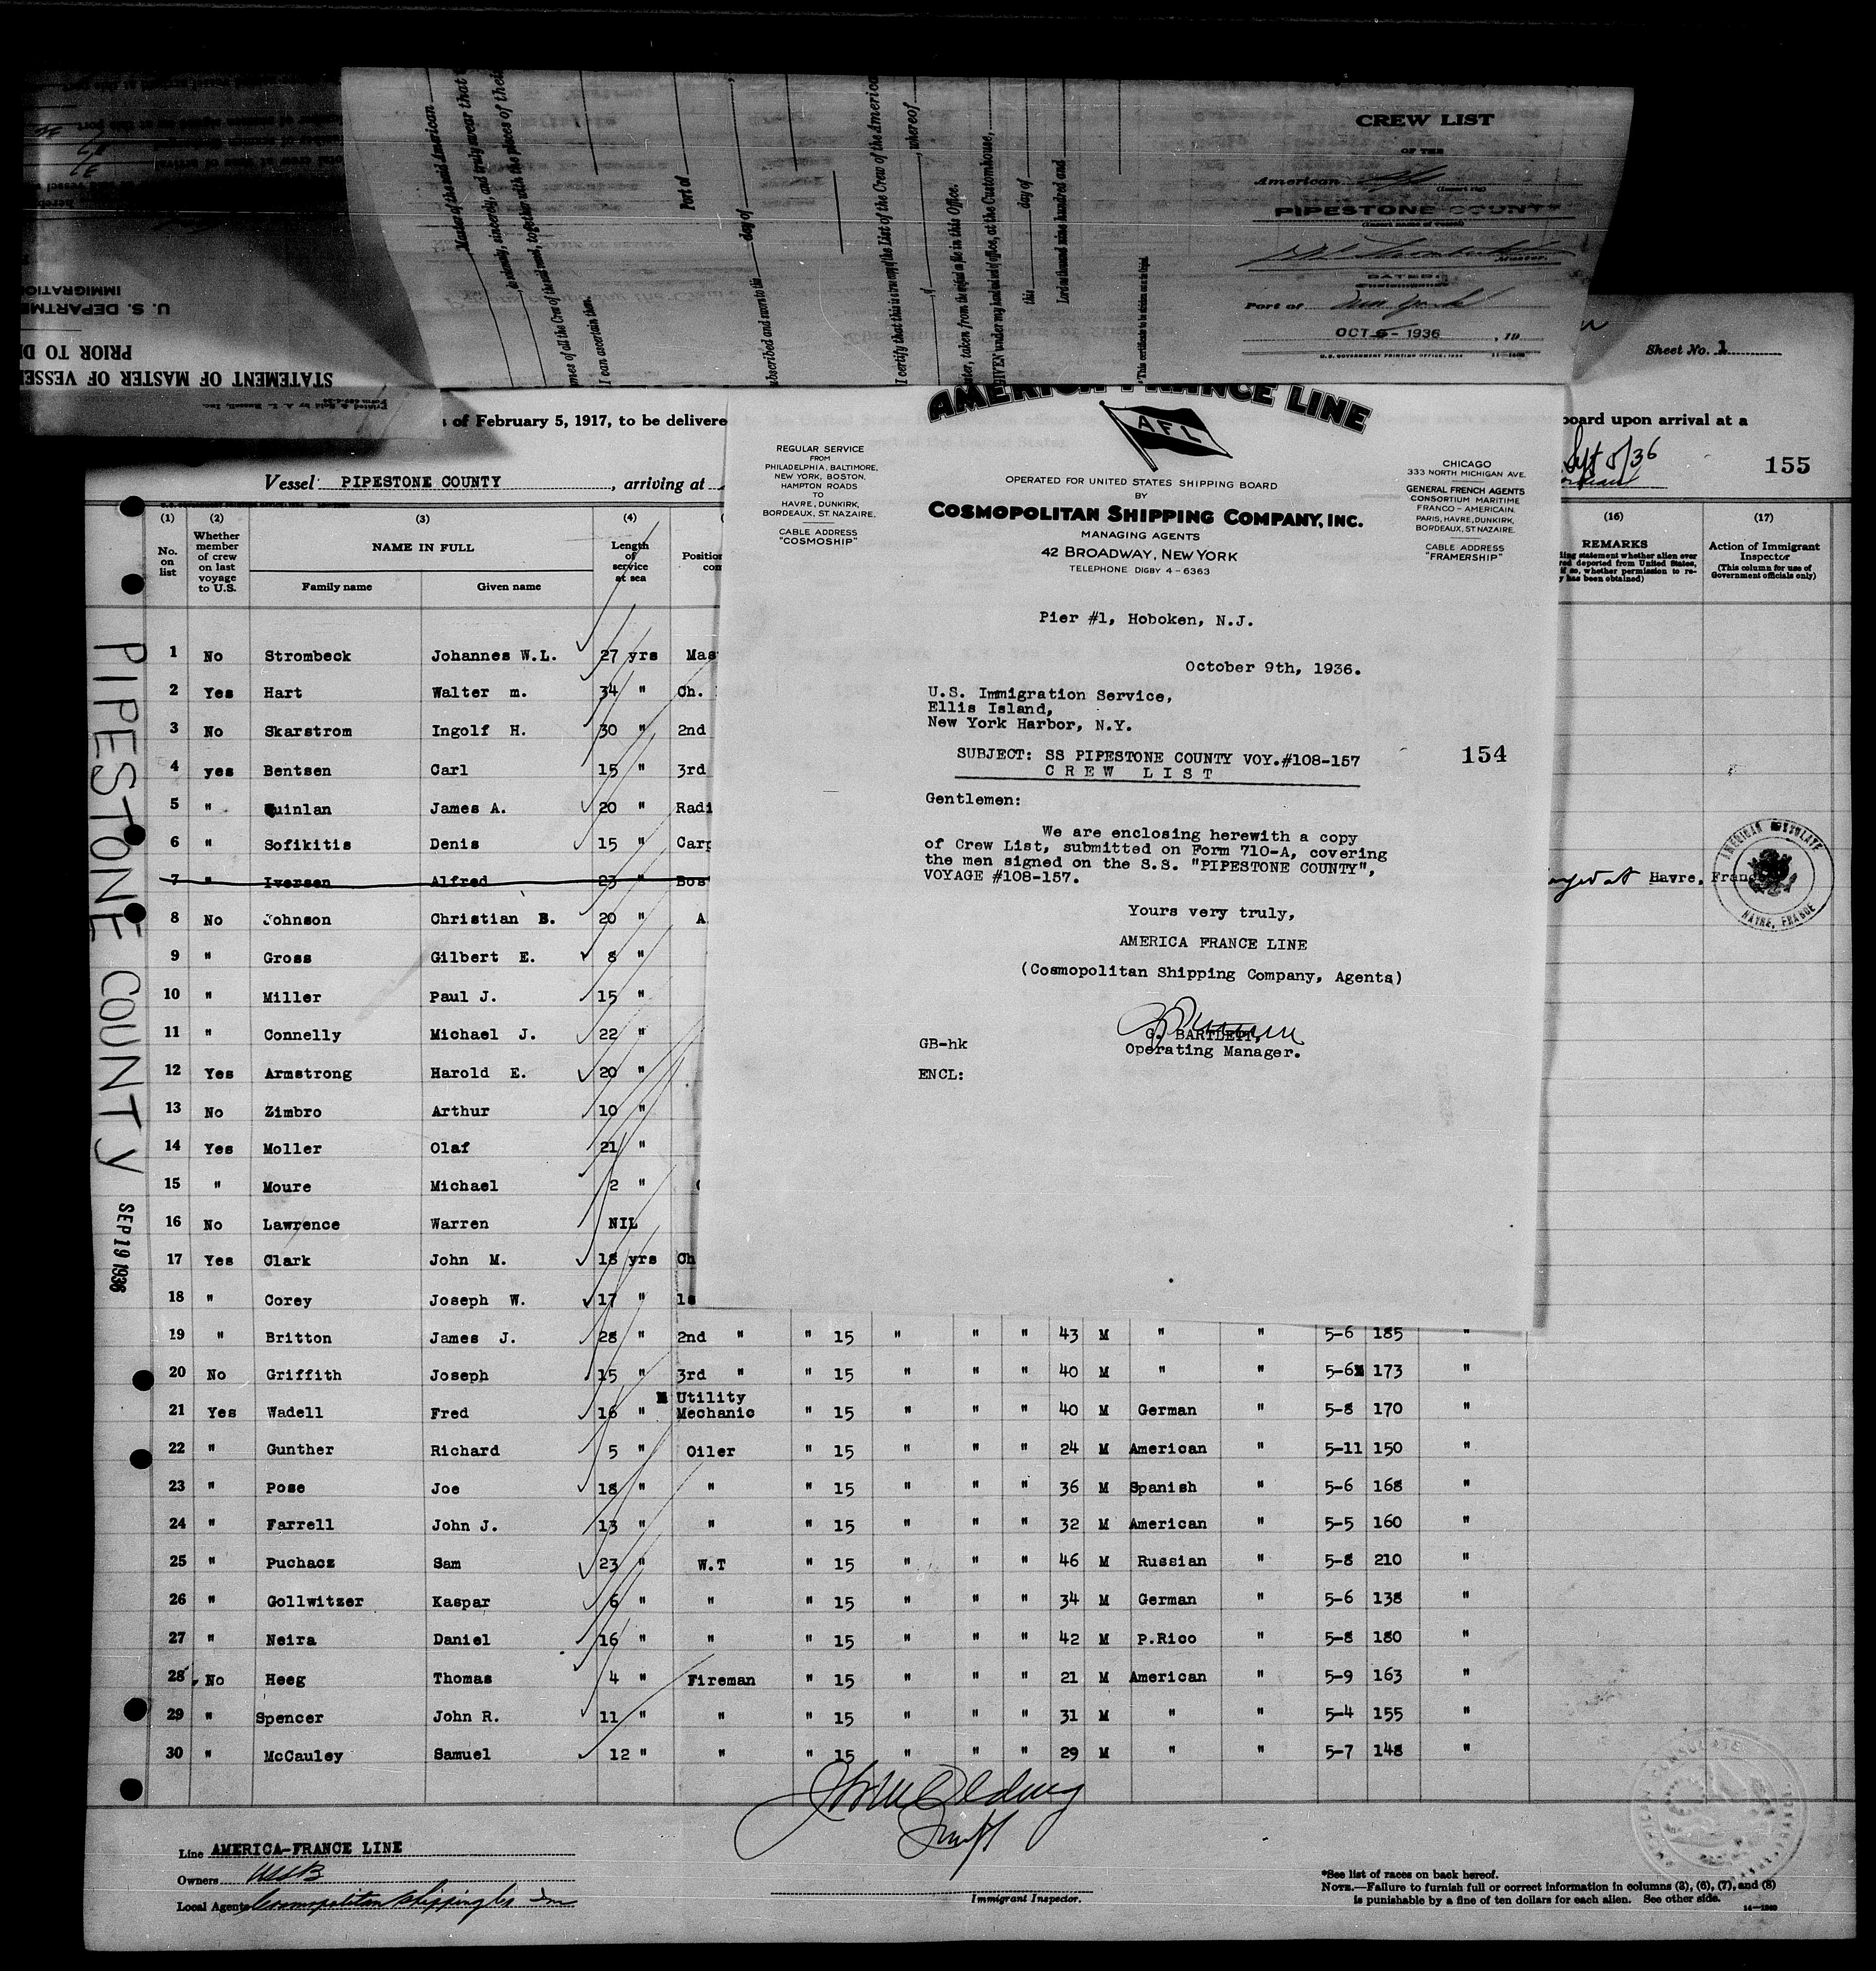 CREW LIST
OF THE
American
(Insert rig)
PIPESTONE COUNTY
(Insert name of vessel)
Master.
DATED:
Port of New York
OCT 5 - 1936 , 19
Master of the said American
do solemnly, sincerely, and truly swear that
names of all the Crew of the said vessel, together with the places of their
I can ascertain them.
Port of
Subscribed and sworn to this day of
I certify that this is a true copy of the List of the Crew of the American
of , whereof
master, taken from the original on file in this Office.
GIVEN under my hand and seal of office, at the Customhouse,
this day of
Lord one thousand nine hundred and
STATEMENT OF MASTER OF VESSEL
PRIOR TO
U. S. DEPARTME
IMMIGRATION
Sheet No. 1
of February 5, 1917, to be delivere
board upon arrival at a
Vessel PIPESTONE COUNTY , arriving at
Sept 5/36
155
(1) (2) (3) (4) (16) (17)
No. on list
Whether member of crew on last voyage to U.S.
NAME IN FULL
Family name Given name
Length of service at sea
Position
REMARKS
Action of Immigrant Inspector
(This column for use of Government officials only)
1 No Strombeck Johannes W.L. 27 yrs Mas
2 Yes Hart Walter m. 34 " Ch.
3 No Skarstrom Ingolf H. 30 " 2nd
4 yes Bentsen Carl 15 " 3rd
5 " Quinlan James A. 20 " Radi
6 " Sofikitis Denis 15 " Carp
7 " Iversen Alfred 23 " Bos
Havre, France
AMERICAN CONSULATE
HAVRE, FRANCE
8 No Johnson Christian B. 20 " A.
9 " Gross Gilbert E. 8 "
10 " Miller Paul J. 15 "
11 " Connelly Michael J. 22 "
12 Yes Armstrong Harold E. 20 "
13 No Zimbro Arthur 10 "
14 Yes Moller Olaf 21 "
15 " Moure Michael 2 "
16 No Lawrence Warren NIL
17 Yes Clark John M. 18 yrs Ch
18 " Corey Joseph W. 17 " 1s
19 " Britton James J. 28 " 2nd " " 15 " " " 43 M " " 5-6 185 "
20 No Griffith Joseph 15 " 3rd " " 15 " " " 40 M " " 5-6 173 "
21 Yes Wadell Fred 16 " Utility Mechanic " 15 " " " 40 M German " 5-8 170 "
22 " Gunther Richard 5 " Oiler " 15 " " " 24 M American " 5-11 150 "
23 " Pose Joe 18 " " " 15 " " " 36 M Spanish " 5-6 168 "
24 " Farrell John J. 13 " " " 15 " " " 32 M American " 5-5 160 "
25 " Puchacz Sam 23 " W.T " 15 " " " 46 M Russian " 5-8 210 "
26 " Gollwitzer Kaspar 6 " " " 15 " " " 34 M German " 5-6 138 "
27 " Neira Daniel 16 " " " 15 " " " 42 M P.Rico " 5-8 180 "
28 No Heeg Thomas 4 " Fireman " 15 " " " 21 M American " 5-9 163 "
29 " Spencer John R. 11 " " " 15 " " " 31 M " " 5-4 155 "
30 " McCauley Samuel 12 " " " 15 " " " 29 M " " 5-7 148 "
PIPESTONE COUNTY
SEP 19 1936
AMERICA FRANCE LINE
AFL
REGULAR SERVICE
FROM
PHILADELPHIA, BALTIMORE,
NEW YORK, BOSTON,
HAMPTON ROADS
TO
HAVRE, DUNKIRK,
BORDEAUX, ST. NAZAIRE.
CABLE ADDRESS
"COSMOSHIP"
OPERATED FOR UNITED STATES SHIPPING BOARD
BY
COSMOPOLITAN SHIPPING COMPANY, INC.
MANAGING AGENTS
42 BROADWAY, NEW YORK
TELEPHONE DIGBY 4-6363
CHICAGO
333 NORTH MICHIGAN AVE.
GENERAL FRENCH AGENTS
CONSORTIUM MARITIME
FRANCO-AMERICAIN.
PARIS, HAVRE, DUNKIRK,
BORDEAUX, ST NAZAIRE.
CABLE ADDRESS
"FRAMERSHIP"
Pier #1, Hoboken, N.J.
October 9th, 1936.
U.S. Immigration Service,
Ellis Island,
New York Harbor, N.Y.
SUBJECT: SS PIPESTONE COUNTY VOY.#108-157
C R E W L I S T
154
Gentlemen:
We are enclosing herewith a copy
of Crew List, submitted on Form 710-A, covering
the men signed on the S.S. "PIPESTONE COUNTY",
VOYAGE #108-157.
Yours very truly,
AMERICA FRANCE LINE
(Cosmopolitan Shipping Company, Agents)
G. BARTLETT,
Operating Manager.
GB-hk
ENCL:
Line AMERICA-FRANCE LINE
Owners USSB
Local Agents Cosmopolitan Shipping Co Inc
Immigrant Inspector.
*See list of races on back hereof.
NOTE.—Failure to furnish full or correct information in columns (3), (6), (7), and (8)
is punishable by a fine of ten dollars for each alien. See other side.